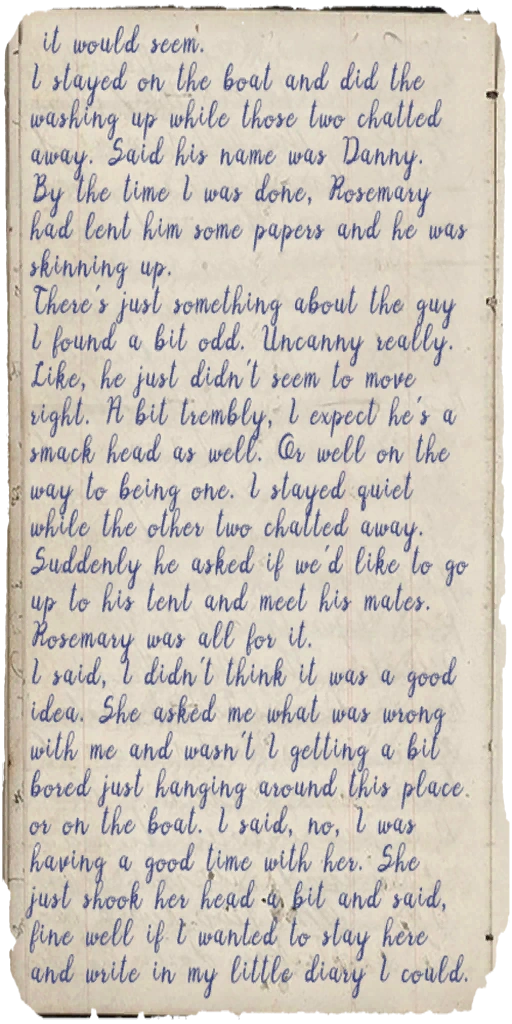 it would seem.
I stayed on the boat and did the
washing up while those two chatted
away. Said his name was Danny.
By the time I was done, Rosemary
had lent him some papers and he was
skinning up.
There's just something about the guy
I found a bit odd. Uncanny really.
Like, he just didn't seem to move
right. A bit trembly, I expect he's a
smack head as well. Or well on the
way to being one. I stayed quiet
while the other two chatted away.
Suddenly he asked if we'd like to go
up to his tent and meet his mates.
Rosemary was all for it.
I said, I didn't think it was a good
idea. She asked me what was wrong
with me and wasn't I getting a bit
bored just hanging around this place
or on the boat. I said, no, I was
having a good time with her. She
just shook her head a bit and said,
fine well if I wanted to stay here
and write in my little diary I could.